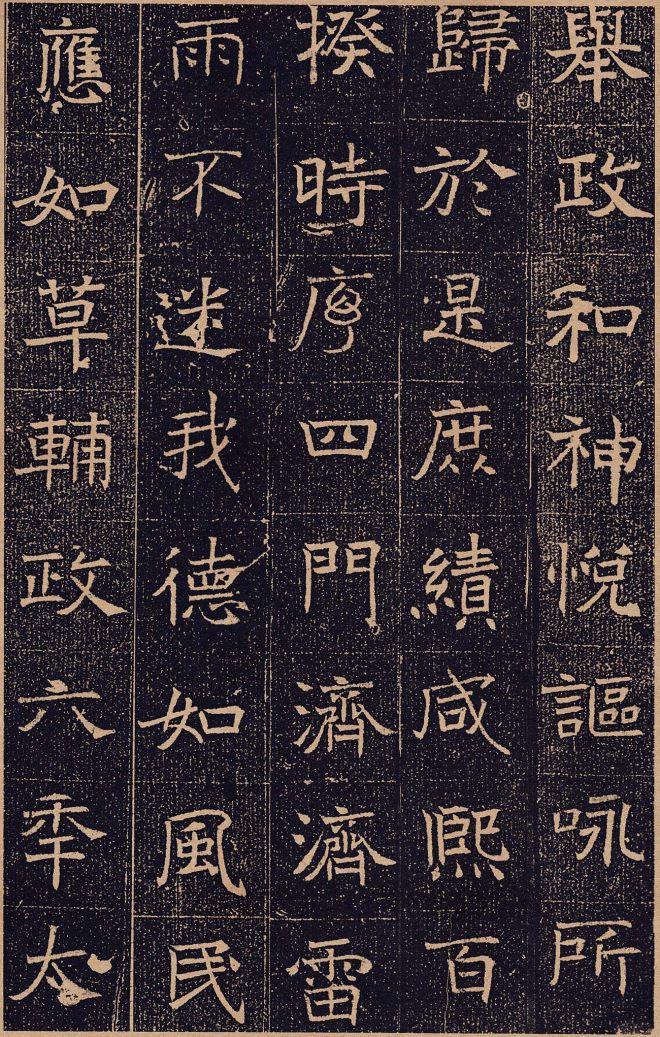 舉政和神悅謳咏所
歸於是庶績咸熙百
揆時序四門濟濟雷
雨不迷我德如風民
應如草輔政六秊太